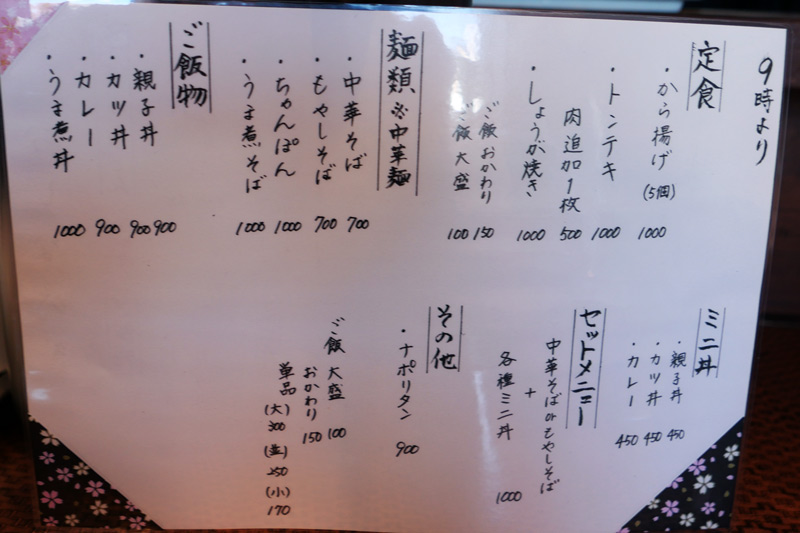 9時より
定食
・から揚げ(5個) 1000
・トンテキ 1000
肉追加1枚 500
・しょうが焼き 1000
ご飯おかわり 150
ご飯大盛 100
麺類 ※中華麺
・中華そば 700
・もやしそば 700
・ちゃんぽん 1000
・うま煮そば 1000
ご飯物
・親子丼 900
・カツ丼 900
・カレー 900
・うま煮丼 1000
ミニ丼
・親子丼 450
・カツ丼 450
・カレー 450
セットメニュー
中華そばorもやしそば
+
各種ミニ丼 1000
その他
・ナポリタン 900
ご飯 大盛 100
おかわり 150
単品(大)300(並)250(小)170